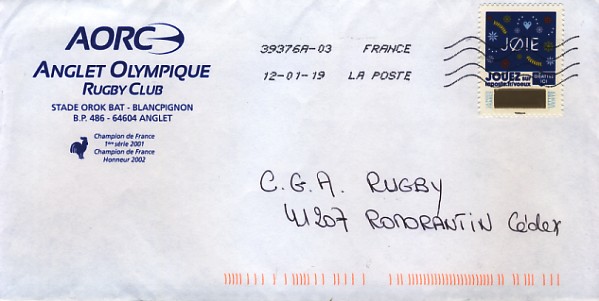 AORC
ANGLET OLYMPIQUE
RUGBY CLUB
STADE OROK BAT - BLANCPIGNON
B.P. 486 - 64604 ANGLET
Champion de France
1ère série 2001
Champion de France
Honneur 2002
39376A-03 FRANCE
12-01-19 LA POSTE
JOIE
JOUEZ sur
laposte.fr/voeux
C.G.A. RUGBY
41207 ROMORANTIN Cédex